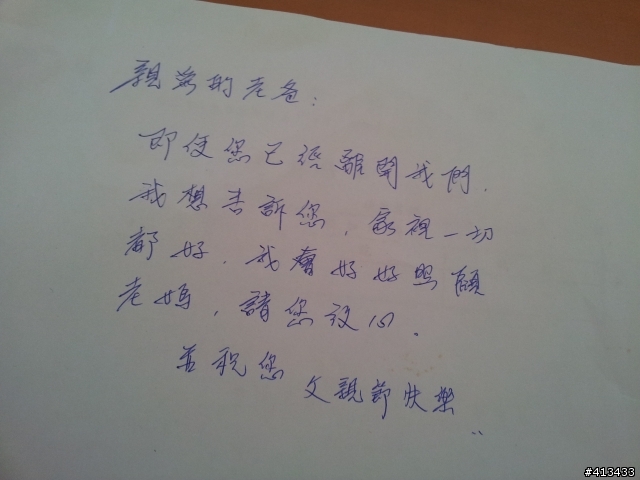 親愛的老爸：
即使您已經離開我們，
我想告訴您，家裡一切
都好，我會好好照顧
老媽，請您放心．
並祝您 父親節快樂
#413433